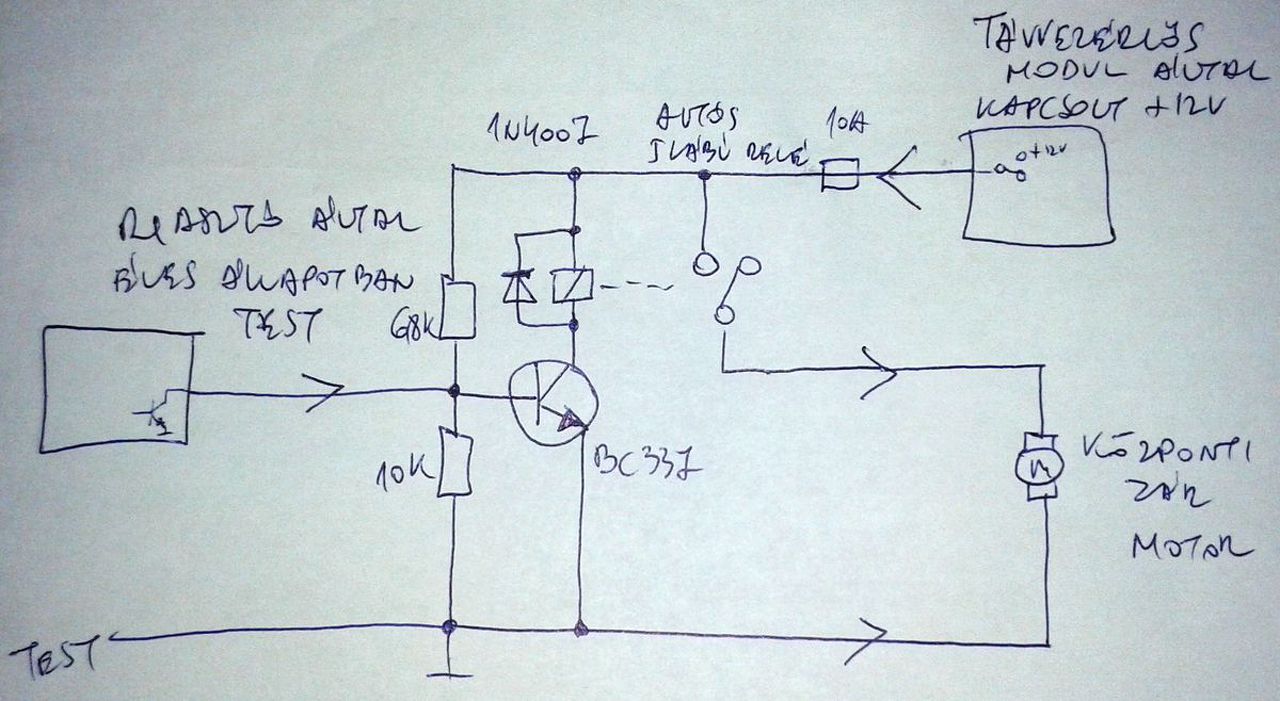 TÁVVEZÉRLŐS
MODUL ÁLTAL
KAPCSOLT +12V
1N4007
AUTÓS
5 LÁBÚ RELÉ
10A
+12V
RIASZTÓ ÁLTAL
ÉLES ÁLLAPOTBAN
TEST
68K
10K
BC337
KÖZPONTI
ZÁR
MOTOR
M
TEST